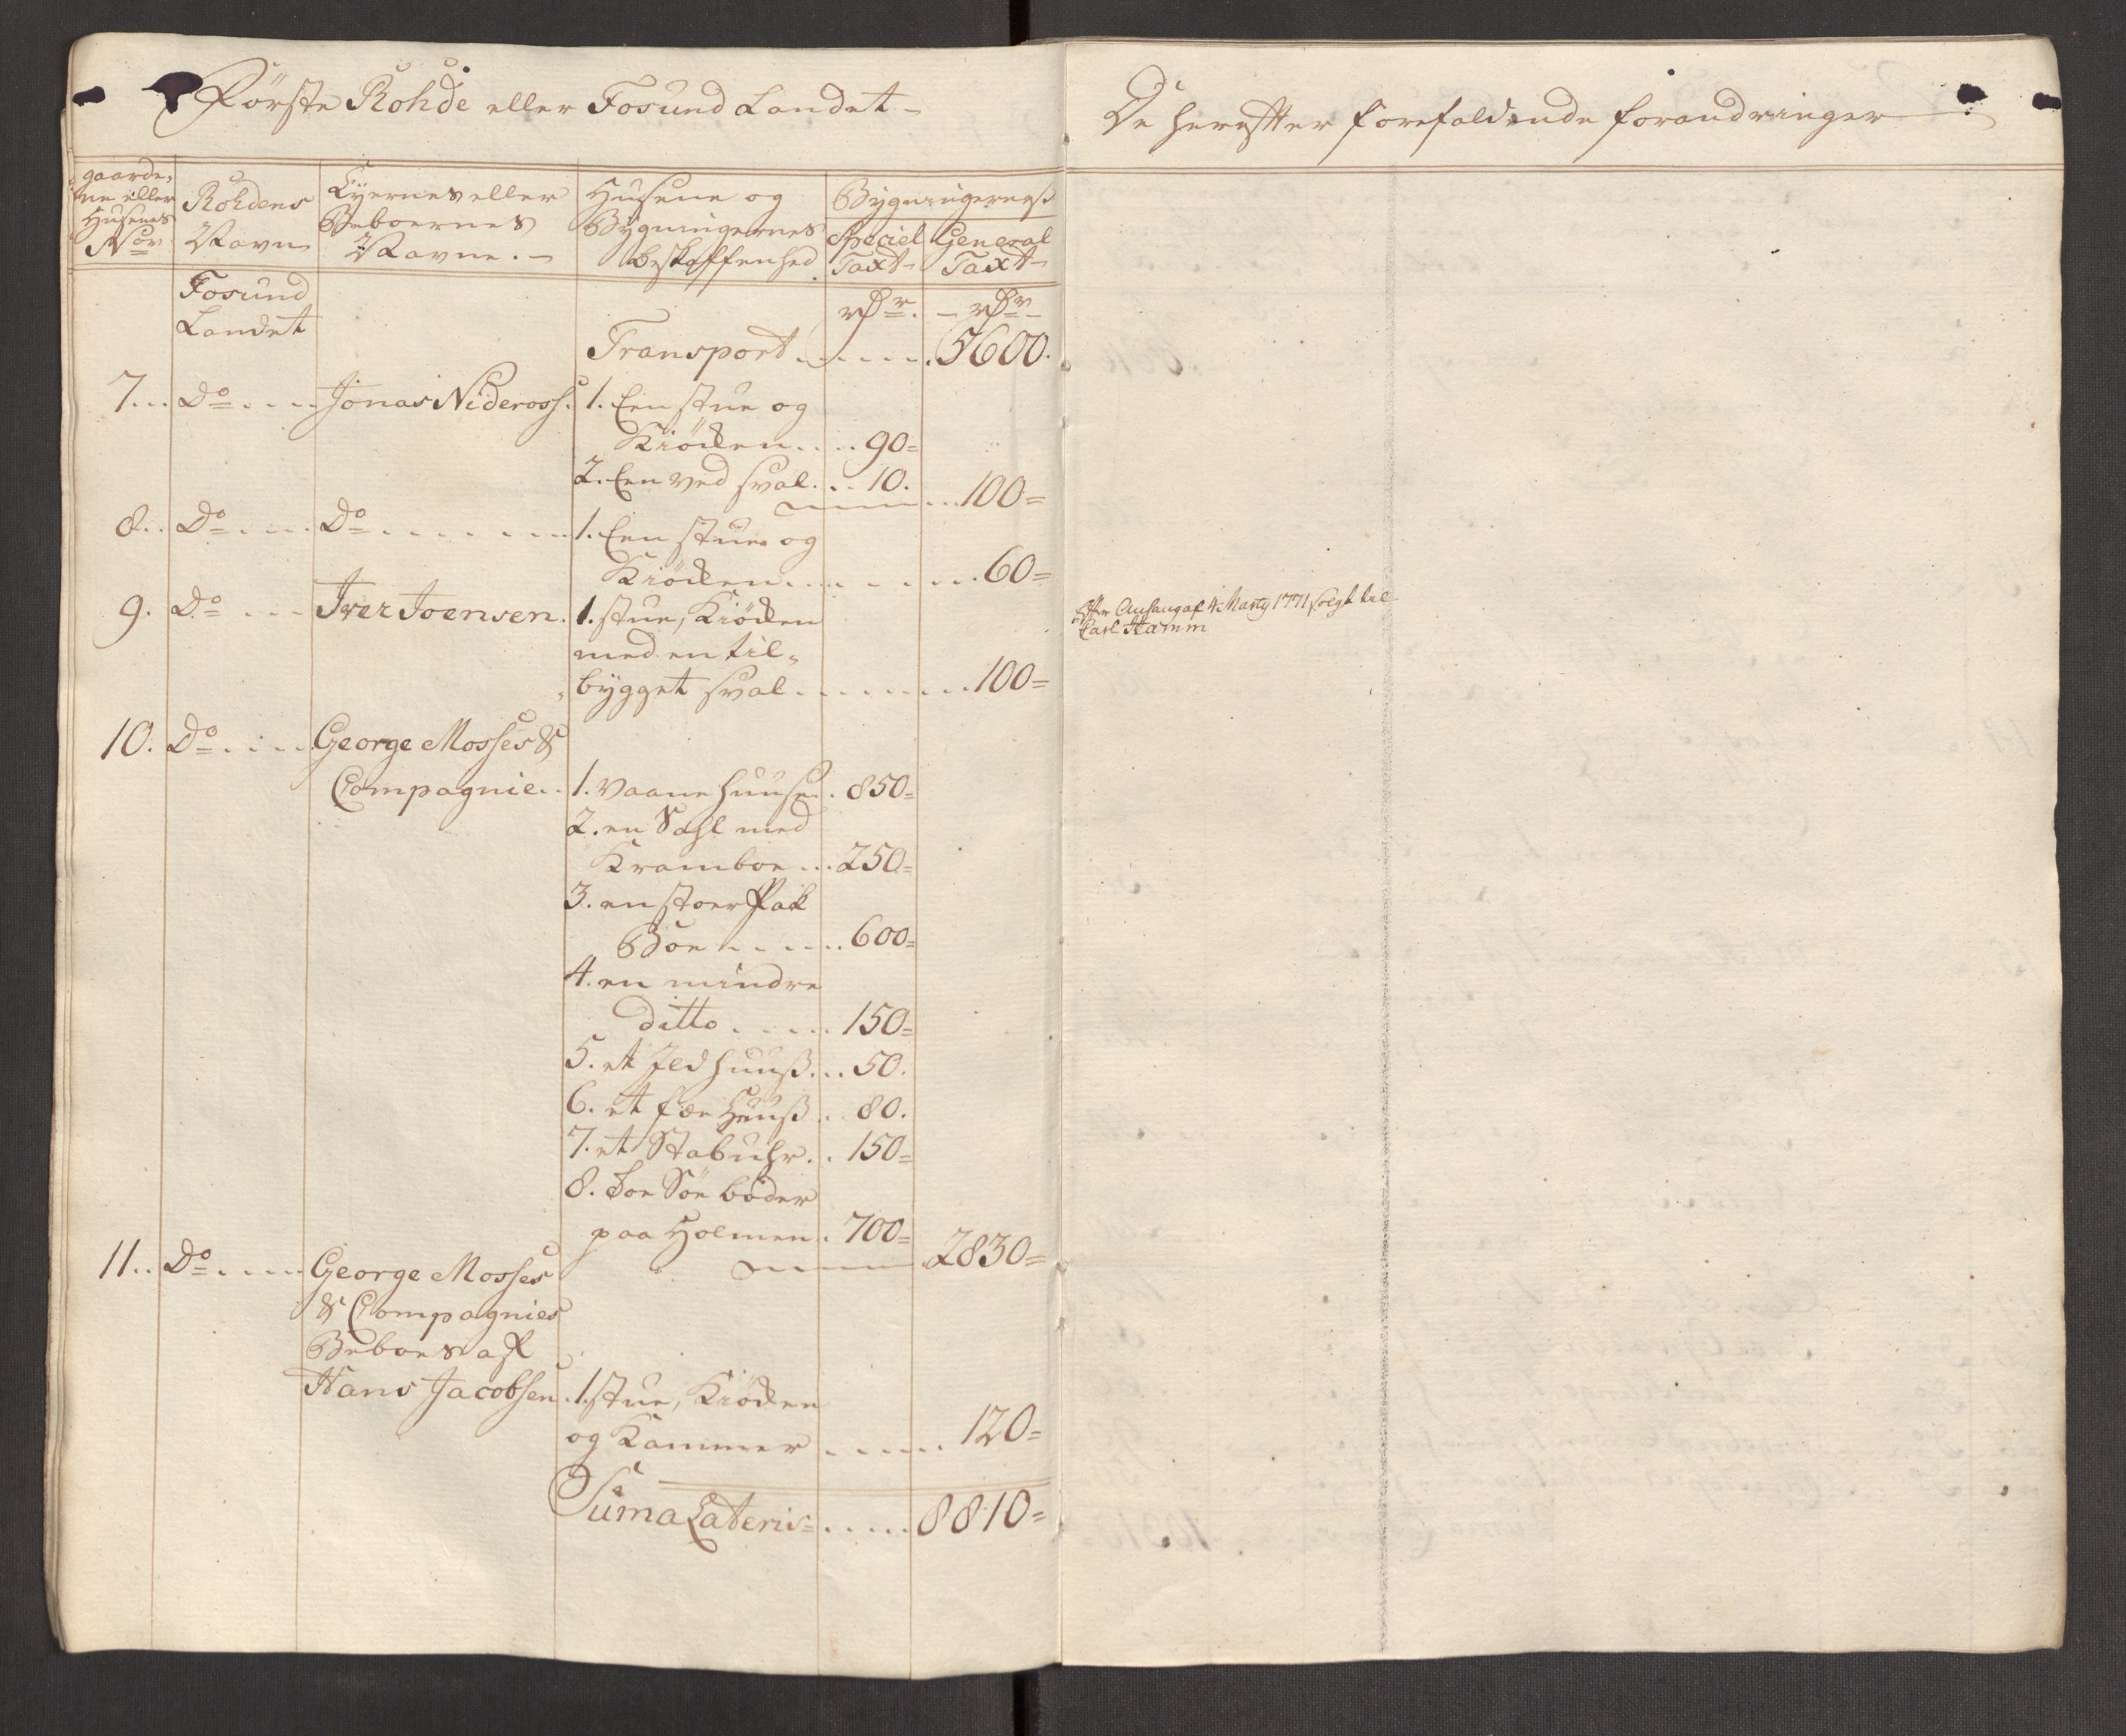 Förste Rohde eller Fosund Landet
gaarde,
ne eller
Husenes
Nor
Rohdens
Navn
Eyernes eller
Beboernes
Navne.
Husene og
Bygningernes
beskaffenhed
Bygningerness
Speciel
Taxt
General
Taxt
Fosund
Landet
rdr. rdr
Transport . . . . . 5600.
7... Do .... Jonas Niderossh. 1. Een stue og
Kiöcken . . . 90=
2. Een ved sval . . . 10. . . 100=
8.. Do .... Do . . . . . . 1. Een stue og
Kiöcken . . . . . . . 60=
9. Do ... Iver Joensen. 1. stue, Kiöcken
med en til=
bygget sval . . . . . . . 100=
10. Do .... George Mosses &
Compagnie.. 1. vaanehuuse . 850=
2. en Sahl med
Kramboe ... 250=
3. en stoer Pak
Boe . . . . . 600=
4. en mindre
ditto . . . . . 150=
5. et Ildhuuss . . . 50.
6. et fæe Huuss . . 80.
7. et Stabuhr . . 150=
8. Toe Söe böder
paa Holmen . 700= 2830=
11.. Do .... George Mosses
& Compagnies
Beboes af
Hans Jacobsen . 1. stue, Kiöcken
og Kammer . . . . . 120=
Suma Lateris . . . . . 8810=
De herefter forefaldende forandringer
Efter Ansøng af 4 Marty 1771 solgt til
Carl Hamm